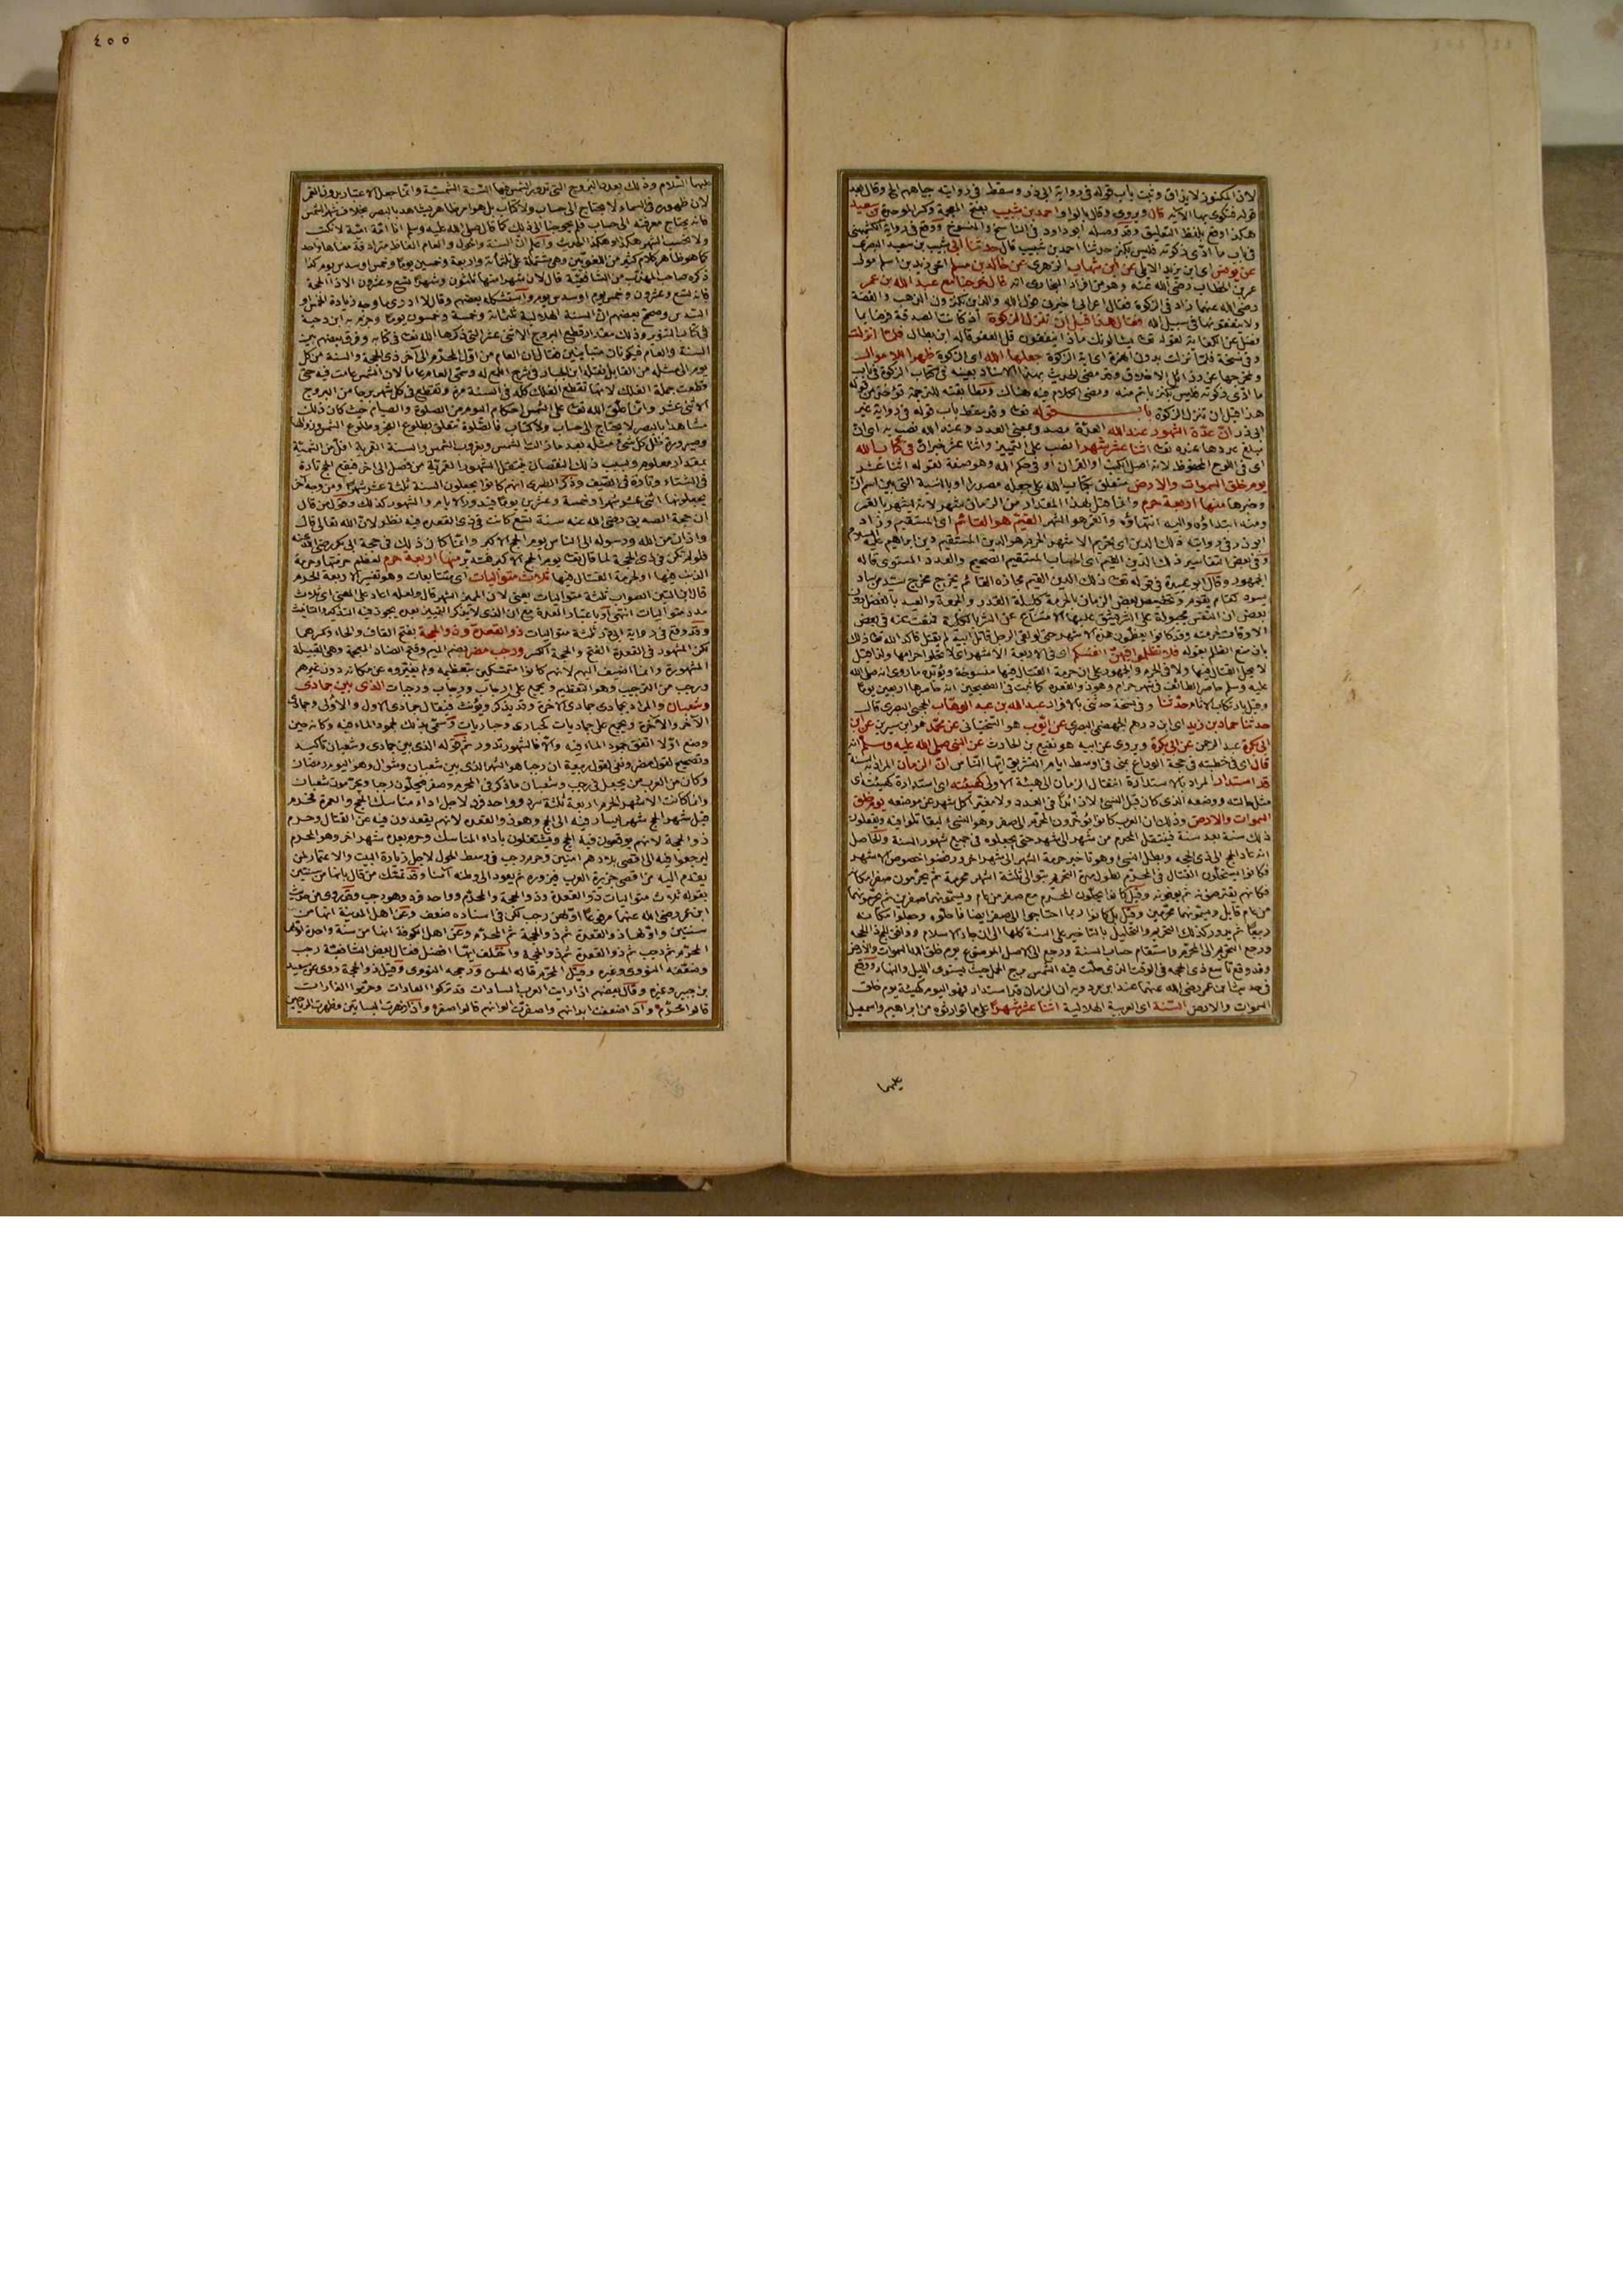 ٤٠٠
لان المكنوز لا يذاق وثبت باب قوله في رواية ابي ذر وسقط في روايته جباههم الخ وقال بعد
قوله فتكوى بها الآية قال ويروى وقال بالواو احمد بن شبيب بفتح المعجمة وكسر الموحدة بن سعيد
هكذا وقع بلفظ التعليق وقد وصله ابو داود في الناسخ والمنسوخ ووقع في رواية الكشميهني
في باب ما ادى زكوته فليس بكنز حدثنا احمد بن شبيب قال حدثنا ابي شبيب بن سعيد البصري
عن يونس اي ابن يزيد الايلي عن ابن شهاب الزهري عن خالد بن مسلم اخي زيد بن اسلم مولى
عمر بن الخطاب رضي الله عنه وهو من افراد البخاري انه قال خرجنا مع عبد الله بن عمر
رضي الله عنهما زاد في الزكوة فقال اعرابي اخبرني قول الله والذين يكنزون الذهب والفضة
ولا ينفقونها في سبيل الله فقال هذا قبل ان تنزل الزكوة اذ كانت الصدقة فرضا بما
فضل عن الكفاية لقوله تعـ يسئلونك ماذا ينفقون قل العفو قاله ابن بطال فلما انزلت
وفي نسخة فلما نزلت بدون الهمزة اي آية الزكوة جعلها الله اي الزكوة طهرا للاموال
ومخرجها عن رذائل الاخلاق وقد مضى الحديث بهذا الاسناد بعينه في كتاب الزكوة في باب
ما ادى زكوته فليس بكنز باتم منه ومضى الكلام فيه هناك ومطابقته للترجمة تؤخذ من قوله
هذا قبل ان تنزل الزكوة باب قوله تعـ وقد سقط باب قوله في رواية غير
ابي ذر ان عدة الشهور عند الله العدة مصدر بمعنى العدد وعند الله نصب به اي ان
مبلغ عددها عنده تعـ اثنا عشر شهرا نصب على التمييز واثنا عشر خبر ان في كتاب الله
اي في اللوح المحفوظ لانه اصل الكتب او القرآن او في حكم الله وهو صفة لقوله اثنا عشر
يوم خلق السموات والارض متعلق بكتاب الله على جعله مصدرا او بالنسبة التي بين اسم ان
وخبرها منها اربعة حرم وانما قيل لهذا المقدار من الزمان شهر لانه يشهر بالقمر
ومنه ابتداؤه واليه انتهاؤه والقمر هو الشهر القيم هو القائم اي المستقيم وزاد
ابو ذر في روايته ذلك الدين اي تحريم الاشهر الحرم هو الدين المستقيم دين ابراهيم عليه السلام
وفي بعض التفاسير ذلك الدين القيم اي الحساب المستقيم الصحيح والعدد المستوي قاله
الجمهور وقال ابو عبيدة في قوله تعـ ذلك الدين القيم مجازه القائم يخرج مخرج سيد من ساد
يسود كقام يقوم وتخصيص بعض الزمان بالحرمة كليلة القدر والجمعة والعيد بالفضل دون
بعض ان النفس مجبولة على الشر فيشق عليها الامتناع عن الشر بالكلية فمنعت عنه في بعض
الاوقات لحرمته وقد كانوا يعظمون هذه الاشهر حتى لو لقي الرجل قاتل ابيه لم يقتل فاكد الله تعـ ذلك
بان منع الظلم بقوله فلا تظلموا فيهن انفسكم اي في الاربعة الاشهر اي لا تحلوا حرامها ولذا قيل
لا يحل القتال فيها ولا في الحرم والجمهور على ان حرمة القتال فيها منسوخة ويؤيده ما روي انه صلى الله
عليه وسلم حاصر الطائف في شهر حرام وهو ذو القعدة كما ثبت في الصحيحين انه حاصرها اربعين يوما
وقيل بارتكاب الاثام حدثنا وفي نسخة حدثني بالافراد عبد الله بن عبد الوهاب الحجبي البصري قال
حدثنا حماد بن زيد اي ابن درهم الجهضمي البصري عن ايوب هو السختياني عن محمد هو ابن سيرين عن ابن
ابي بكرة عبد الرحمن عن ابي بكرة ويروى عن ابيه هو نفيع بن الحارث عن النبي صلى الله عليه وسلم انه
قال اي في خطبته في حجة الوداع بمنى في اوسط ايام التشريق ايها الناس ان الزمان المراد به السنة
قد استدار المراد بالاستدارة انتقال الزمان الى هيئة الاولى كهيئته اي استدارة كهيئته اي
مثل حالته ووضعه الذي كان قبل النسئ لا زائدا في العدد ولا مغيرا كل شهر عن موضعه يوم خلق
السموات والارض وذلك ان العرب كانوا يؤخرون المحرم الى صفر وهو النسئ ليقاتلوا فيه ويفعلون
ذلك سنة بعد سنة فينتقل المحرم من شهر الى شهر حتى يجعلوه في جميع شهور السنة والحاصل
انه عاد الحج الى ذي الحجة وبطل النسئ وهو تأخير حرمة الشهر الى شهر آخر ورفضوا خصوص الاشهر
فكانوا يستحلون القتال في المحرم لطول مدة التحريم بتوالي ثلثة اشهر محرمة ثم يحرمون صفر مكانه
فكانهم يقترضونه ثم يوفونه وقيل كانوا يحلون المحرم مع صفر من عام ويسمونهما صفرين ثم يحرمونهما
من عام قابل ويسمونهما محرمين وقيل بل كانوا ربما احتاجوا الى صفر ايضا فاحلوه وجعلوا مكانه
ربيعا ثم يدور كذلك التحريم والتحليل بالتأخير على السنة كلها الى ان جاء الاسلام ووافق الحج ذا الحجة
ورجع التحريم الى المحرم واستقام حساب السنة ورجع الى الاصل الموضوع يوم خلق الله السموات والارض
وقد وقع تاسع ذي الحجة في الوقت الذي حلت فيه الشمس برج الحمل حيث يستوي الليل والنهار ووقع
في حديث ابن عمر رضي الله عنهما عند ابن مردويه ان الزمان قد استدار فهو اليوم كهيئة يوم خلق
السموات والارض السنة اي العربية الهلالية اثنا عشر شهرا على ما توارثوه من ابراهيم واسمعيل
عليهما
عليهما السلام وذلك بعدد البروج التي تدور الشمس فيها السنة الشمسية وانما جعل الاعتبار بدور القمر
لان ظهوره في السماء لا يحتاج الى حساب ولا كتاب بل هو امر ظاهر يشاهد بالبصر بخلاف سير الشمس
فانه يحتاج معرفته الى حساب فلم يحوجنا الى ذلك كما قال صلى الله عليه وسلم انا امة امية لا نكتب
ولا نحسب الشهر هكذا وهكذا الحديث واعلم ان السنة والحول والعام الفاظ مترادفة معناها واحد
كما هو ظاهر كلام كثير من اللغويين وهي مشتملة على ثلثمائة واربعة وخمسين يوما وخمس او سدس يوم كذا
ذكره صاحب المهذب من الشافعية قال لان شهرا منها ثلثون وشهرا تسع وعشرون الا ذا الحجة
فانه تسع وعشرون وخمس يوم او سدس يوم واستشكله بعضهم وقال لا ادري ما وجه زيادة الخمس او
السدس وصحح بعضهم ان السنة الهلالية ثلثمائة وخمسة وخمسون يوما وجزم به ابن دحية
في كتاب التنوير وذلك مقدار قطع البروج الاثني عشر التي ذكرها الله تعـ في كتابه وفرق بعضهم بين
السنة والعام فيكونان متباينين فقال ان العام من اول المحرم الى آخر ذي الحجة والسنة من كل
يوم الى مثله من القابل نقله ابن الخباز في شرح اللمع له وسمي العام عاما لان الشمس عامت فيه حتى
قطعت جملة الفلك لانها تقطع الفلك كله في السنة مرة وتقطع في كل شهر برجا من البروج
الاثني عشر وانما علق الله تعـ على الشمس احكام اليوم من الصلوة والصيام حيث كان ذلك
مشاهدا بالبصر لا يحتاج الى حساب ولا كتاب فالصلوة تتعلق بطلوع الفجر وطلوع الشمس وزوالها
وصيرورة ظل كل شئ مثله بعد ما زالت الشمس وبغروب الشمس والسنة القمرية اقل من الشمسية
بمقدار معلوم وبسبب ذلك النقصان ينتقل الشهور القمرية من فصل الى آخر فيقع الحج تارة
في الشتاء وتارة في الصيف وذكر الطبري انهم كانوا يجعلون السنة ثلثة عشر شهرا ومن وجه آخر
يجعلونها اثني عشر شهرا وخمسة وعشرين يوما فيدور الايام والشهور كذلك وقول من قال
ان حجة الصديق رضي الله عنه سنة تسع كانت في ذي القعدة فيه نظر لان الله تعالى قال
واذان من الله ورسوله الى الناس يوم الحج الاكبر وانما كان ذلك في حجة ابي بكر رضي الله عنه
فلو لم تكن في ذي الحجة لما قال تعـ يوم الحج الاكبر فتدبر منها اربعة حرم لعظم حرمتها وحرمة
الذنب فيها او لحرمة القتال فيها ثلاث متواليات اي متتابعات وهو تفسير الاربعة الحرم
قال ابن التين الصواب ثلثة متواليات يعني لان المميز الشهر قال ولعله اعاد على المعنى اي ثلاث
مدد متواليات انتهى او باعتبار العدة مع ان الذي لا يذكر التمييز بعده يجوز فيه التذكير والتأنيث
وقد وقع في رواية اخرى ثلثة متواليات ذو القعدة وذو الحجة بفتح القاف والحاء وكسرهما
لكن المشهور في القعدة الفتح والحجة الكسر ورجب مضر بضم الميم وفتح الضاد المعجمة وهي القبيلة
المشهورة وانما اضيف اليهم لانهم كانوا متمسكين بتعظيمه ولم يغيروه عن مكانه دون غيرهم
ورجب من الترجيب وهو التعظيم ويجمع على ارجاب ورجاب ورجبات الذي بين جمادى
وشعبان والمراد بجمادى جمادى الآخرة وقد يذكر ويؤنث فيقال جمادى الاول والاولى وجمادى
الآخر والآخرة ويجمع على جماديات كحبارى وحباريات وسمي بذلك لجمود الماء فيه وكانه حين
وضع اولا اتفق جمود الماء فيه والا فالشهور تدور ثم قوله الذي بين جمادى وشعبان تأكيد
وتصحيح لقول مضر ونفي لقول ربيعة ان رجبا هو الشهر الذي بين شعبان وشوال وهو اليوم رمضان
وكان من العرب من يجعل في رجب وشعبان ما ذكر في المحرم وصفر فيحلون رجبا ويحرمون شعبان
وانما كانت الاشهر الحرم اربعة ثلثة سرد وواحد فرد لاجل اداء مناسك الحج والعمرة فحرم
قبل شهر الحج شهر ليسار فيه الى الحج وهو ذو القعدة لانهم يقعدون فيه عن القتال وحرم
ذو الحجة لانهم يوقعون فيه الحج ويشتغلون باداء المناسك وحرم بعده شهر آخر وهو المحرم
ليرجعوا فيه الى اقصى بلادهم آمنين وحرم رجب في وسط الحول لاجل زيارة البيت والاعتمار لمن
يقدم اليه من اقصى جزيرة العرب فيزوره ثم يعود الى وطنه آمنا وقد تمسك من قال بانها من سنتين
بقوله ثلاث متواليات ذو القعدة وذو الحجة والمحرم وواحد فرد وهو رجب وقد روي من حديث
ابن عمر رضي الله عنهما مرفوعا اولهن رجب لكن في اسناده ضعف وعن اهل المدينة انها من
سنتين واولها ذو القعدة ثم ذو الحجة ثم المحرم وعن اهل الكوفة انها من سنة واحدة اولها
المحرم ثم رجب ثم ذو القعدة ثم ذو الحجة واختلف ايها افضل فقال بعض الشافعية رجب
وضعفه النووي وغيره وقيل المحرم قاله الحسن ورجحه النووي وقيل ذو الحجة روي عن سعيد
بن جبير وغيره وقال بعضهم اذا رايت العرب السادات قد تركوا العادات وحرموا الغارات
قالوا محرم واذا ضعفت ابدانهم واصفرت الوانهم قالوا صفر واذا زهرت البساتين وظهرت الرياحين